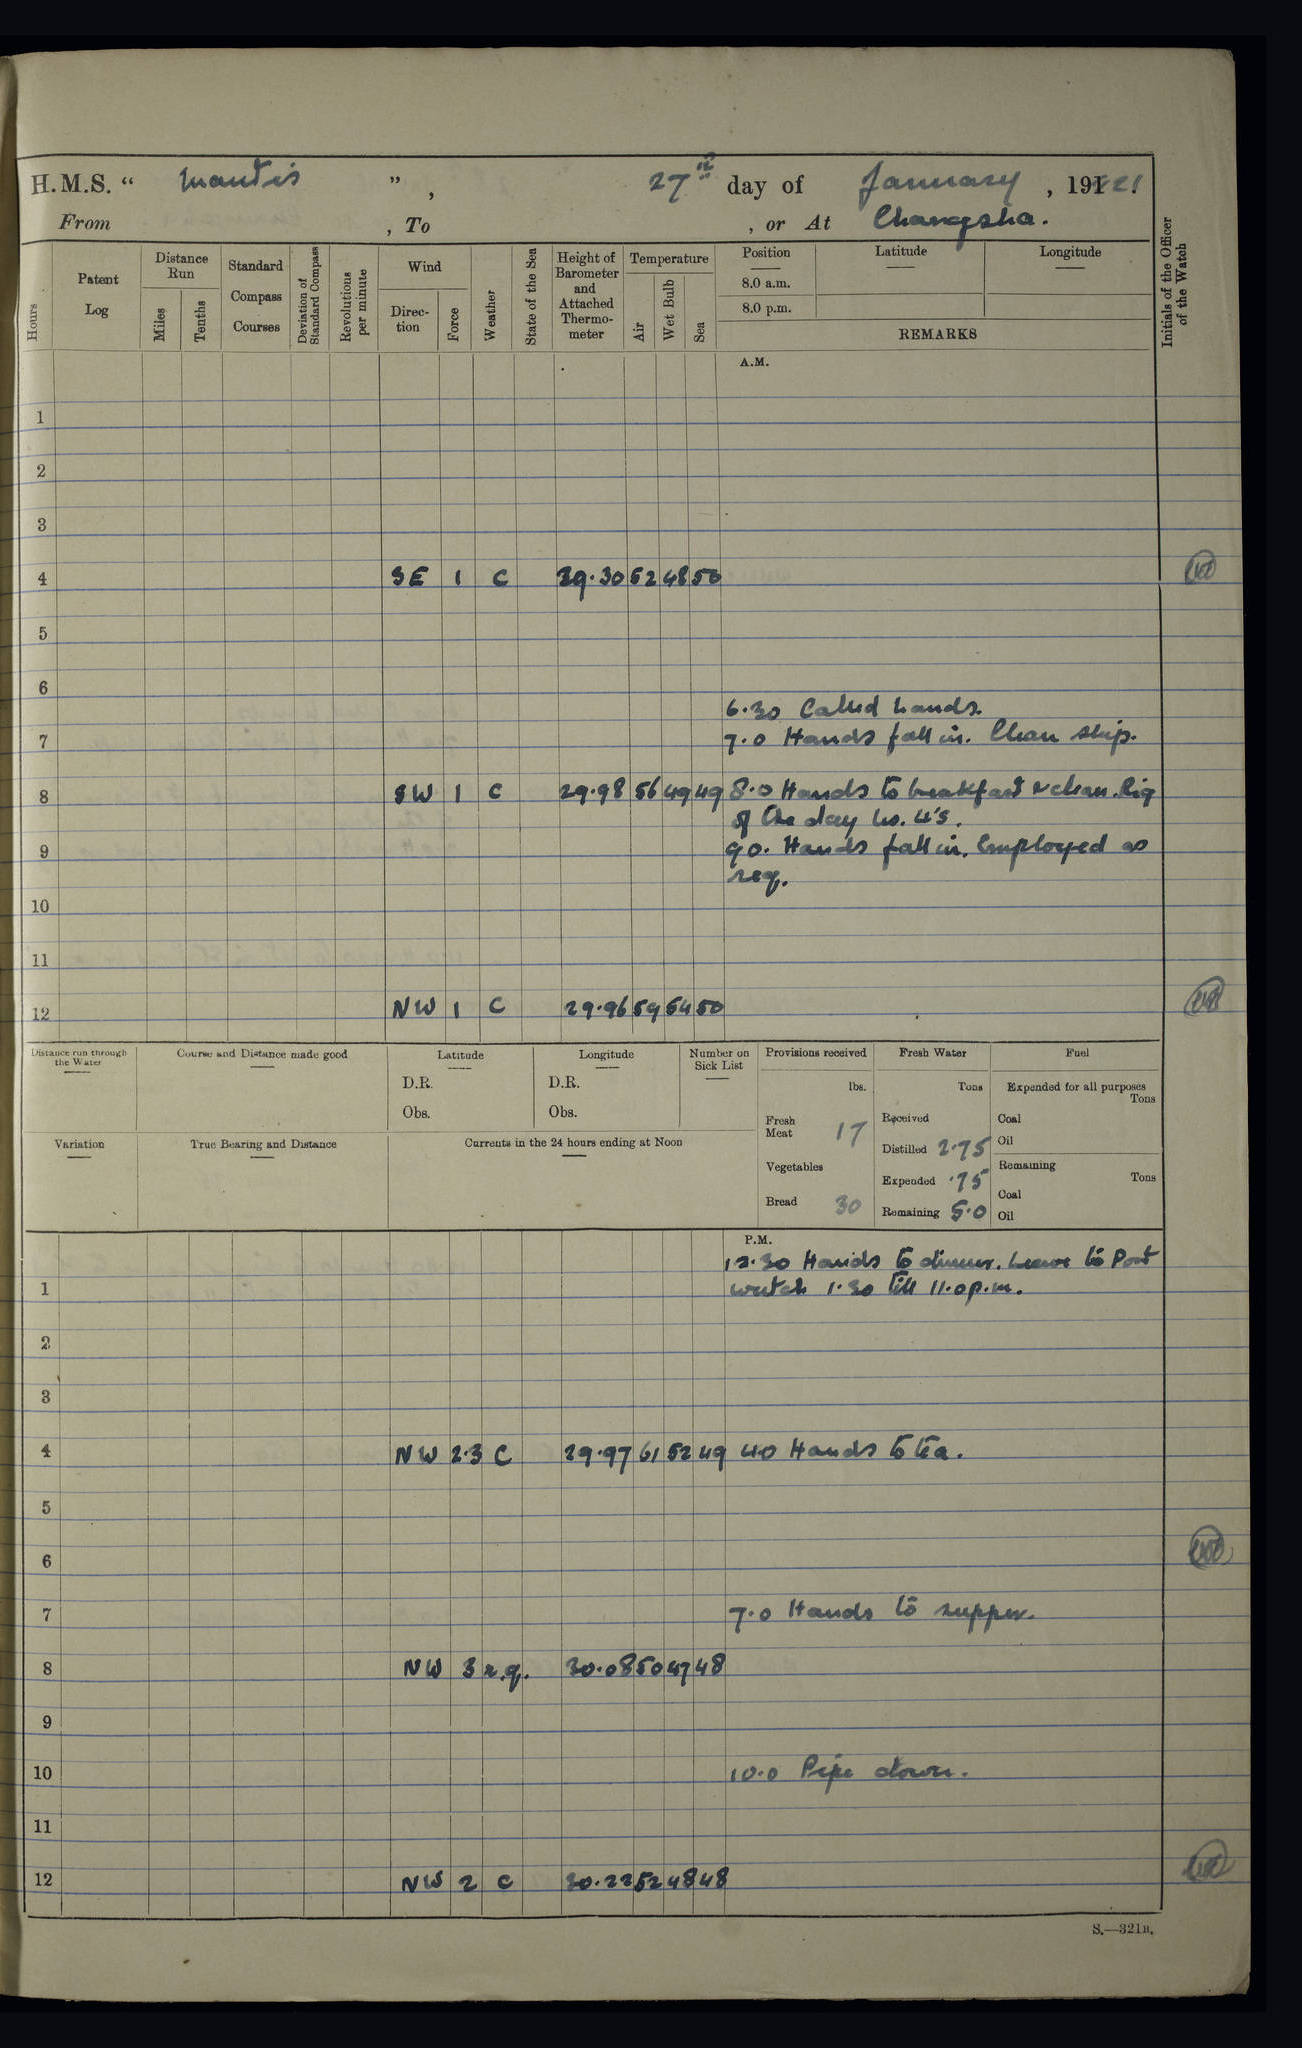 H.M.S. " Mantis " , 27th day of January , 1921
From , To , or At Changsha.
Hours
Patent Log
Distance Run
Miles
Tenths
Standard Compass Courses
Deviation of Standard Compass
Revolutions per minute
Wind
Direction
Force
Weather
State of the Sea
Height of Barometer and Attached Thermometer
Temperature
Air
Wet Bulb
Sea
Position
8.0 a.m.
8.0 p.m.
Latitude
Longitude
REMARKS
Initials of the Officer of the Watch
A.M.
1
2
3
4 SE 1 C 29.30 52 48 50
5
6
6.30 Called hands.
7 7.0 Hands fall in. Clean ship.
8 SW 1 C 29.98 56 49 49 8.0 Hands to breakfast & clean. Rig
of the day No. 4's.
9 9 0. Hands fall in. Employed as
req.
10
11
12 NW 1 C 29.96 59 54 50
Distance run through the Water
Course and Distance made good
Latitude
D.R.
Obs.
Longitude
D.R.
Obs.
Number on Sick List
Provisions received
lbs.
Fresh Meat 17
Vegetables
Bread 30
Fresh Water
Tons
Received
Distilled 2.75
Expended .75
Remaining 5.0
Fuel
Expended for all purposes
Tons
Coal
Oil
Remaining
Tons
Coal
Oil
Variation
True Bearing and Distance
Currents in the 24 hours ending at Noon
P.M.
12.30 Hands to dinner. Leave to Port
1 watch 1.30 till 11.0 p.m.
2
3
4 NW 2.3 C 29.97 61 52 49 4.0 Hands to tea.
5
6
7 7.0 Hands to supper.
8 NW 3 r.q. 30.08 50 47 48
9
10 10.0 Pipe down.
11
12 NW 2 C 30.22 52 48 48
S.—321B.